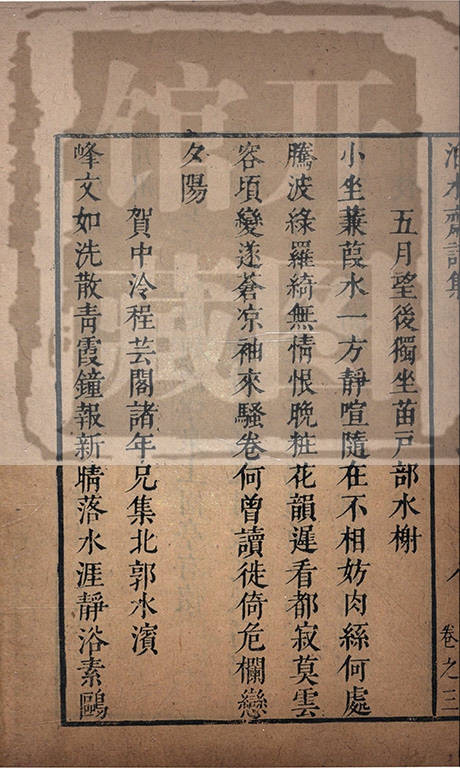 五月望後獨坐苗戸部水榭
小坐蒹葭水一方靜喧隨在不相妨肉絲何處
騰波綠羅綺無情恨晚粧花韻遲看都寂莫雲
容頃變遂蒼凉袖來騷卷何曾讀徙倚危欄戀
夕陽
賀中泠程芸閣諸年兄集北郭水濱
峰文如洗散青霞鐘報新晴落水涯靜浴素鷗
卷之三